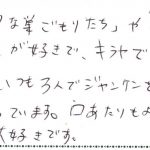 な巣ごもりたち」や
が好きで、キラヤで
いつも3人でジャンケンを
っています。日あたりもよ
好きです。